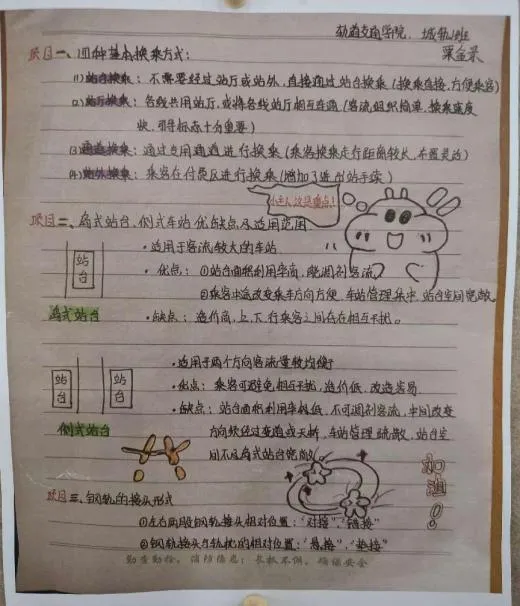 轨道交通学院．城轨1班
项目一、四种基本换乘方式：
(1)站台换乘：不需要经过站厅或站外，直接通过站台换乘(换乘直接，方便乘客)
(2)站厅换乘：各线共用站厅，或将各线站厅相互连通(客流组织简单，换乘速度
快，引导标志十分重要)
(3)通道换乘：通过专用通道进行换乘(乘客换乘走行距离较长，布置灵活)
(4)站外换乘：乘客在付费区进行换乘(增加了进出站手续)
小主人这是重点！
项目二、岛式站台、侧式车站优缺点及适用范围
·适用于客流较大的车站
站台
·优点：①站台面积利用率高，能调剂客流
②乘客中途改变乘车方向方便，车站管理集中，站台空间宽敞。
岛式站台
·缺点：造价高，上、下行乘客之间存在相互干扰。
·适用于两个方向客流量较均衡
站台 站台
·优点：乘客可避免相互干扰，造价低，改造容易
·缺点：站台面积利用率低，不可调剂客流，中间改变
侧式站台
方向须经过天桥，车站管理疏散，站台空
间不及岛式站台宽敞
加油！
项目三、钢轨的接头形式
①左右两股钢轨接头相对位置："对接"，"错接"
②钢轨接头与轨枕的相对位置："悬接"，"垫接"
勤查勤检，消防隐患；长抓不懈，确保安全